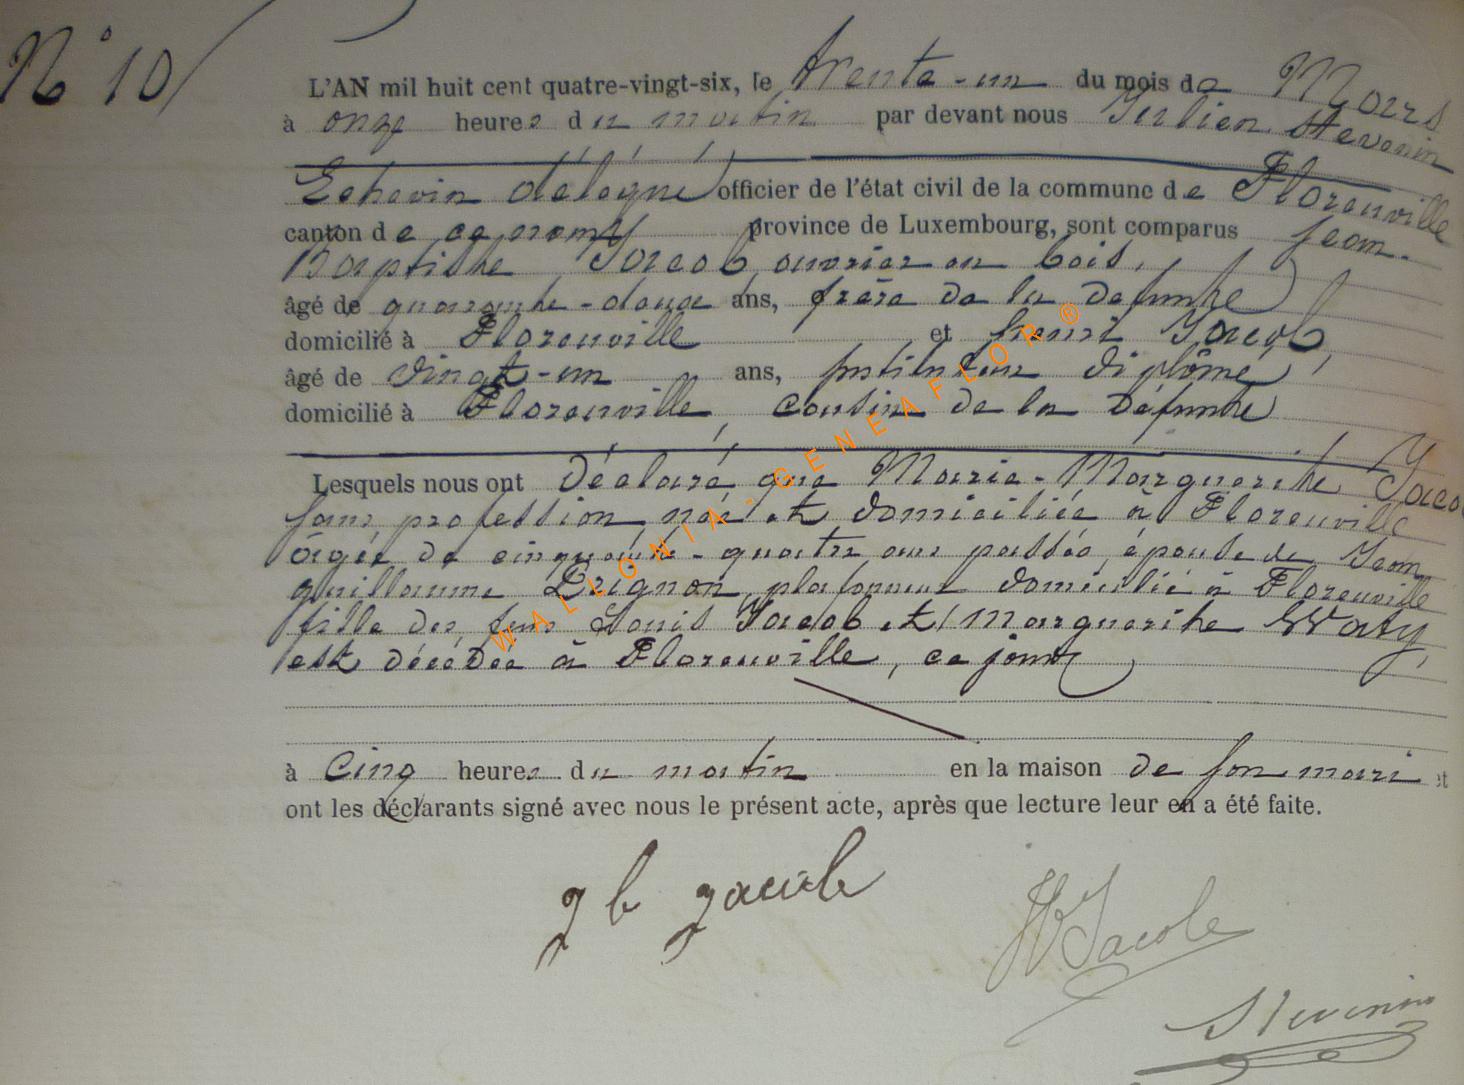 N° 10
L'AN mil huit cent quatre-vingt-six, le trente-un du mois de Mars
à onze heures du matin par devant nous Julien Stevenin
Echevin délégué officier de l'état civil de la commune de Florenville
canton de ce nom province de Luxembourg, sont comparus Jean-
Baptiste Jacob, ouvrier en bois,
âgé de quarante-deux ans, frère de la defunte
domicilié à Florenville et henri Jacob,
âgé de vingt-un ans, instituteur diplômé,
domicilié à Florenville, cousin de la défunte
Lesquels nous ont déclaré que Marie-Marguerite Jacob
sans profession née et domiciliée à Florenville
âgée de cinquante-quatre ans passés, épouse de Jean
guillaume plafonneur domicilié à Florenville
fille des feus Louis Jacob et Marguerite Waty,
est décédée à Florenville, ce jour
à cinq heures du matin en la maison de son mari et
ont les déclarants signé avec nous le présent acte, après que lecture leur en a été faite.
J b Jacob
H Jacob
Stevenin
WALLONIA-GENEAFLOR®